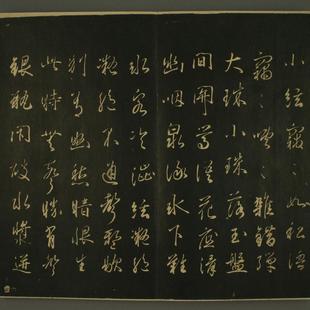 小絃竊〻如私語
竊〻嘈〻雜錯彈
大珠小珠落玉盤
間關鶯語花底滑
幽咽泉流水下難
冰泉冷澀絃凝絕
凝絕不通聲暫歇
別有幽愁暗恨生
此時無聲勝有聲
銀瓶破水漿迸